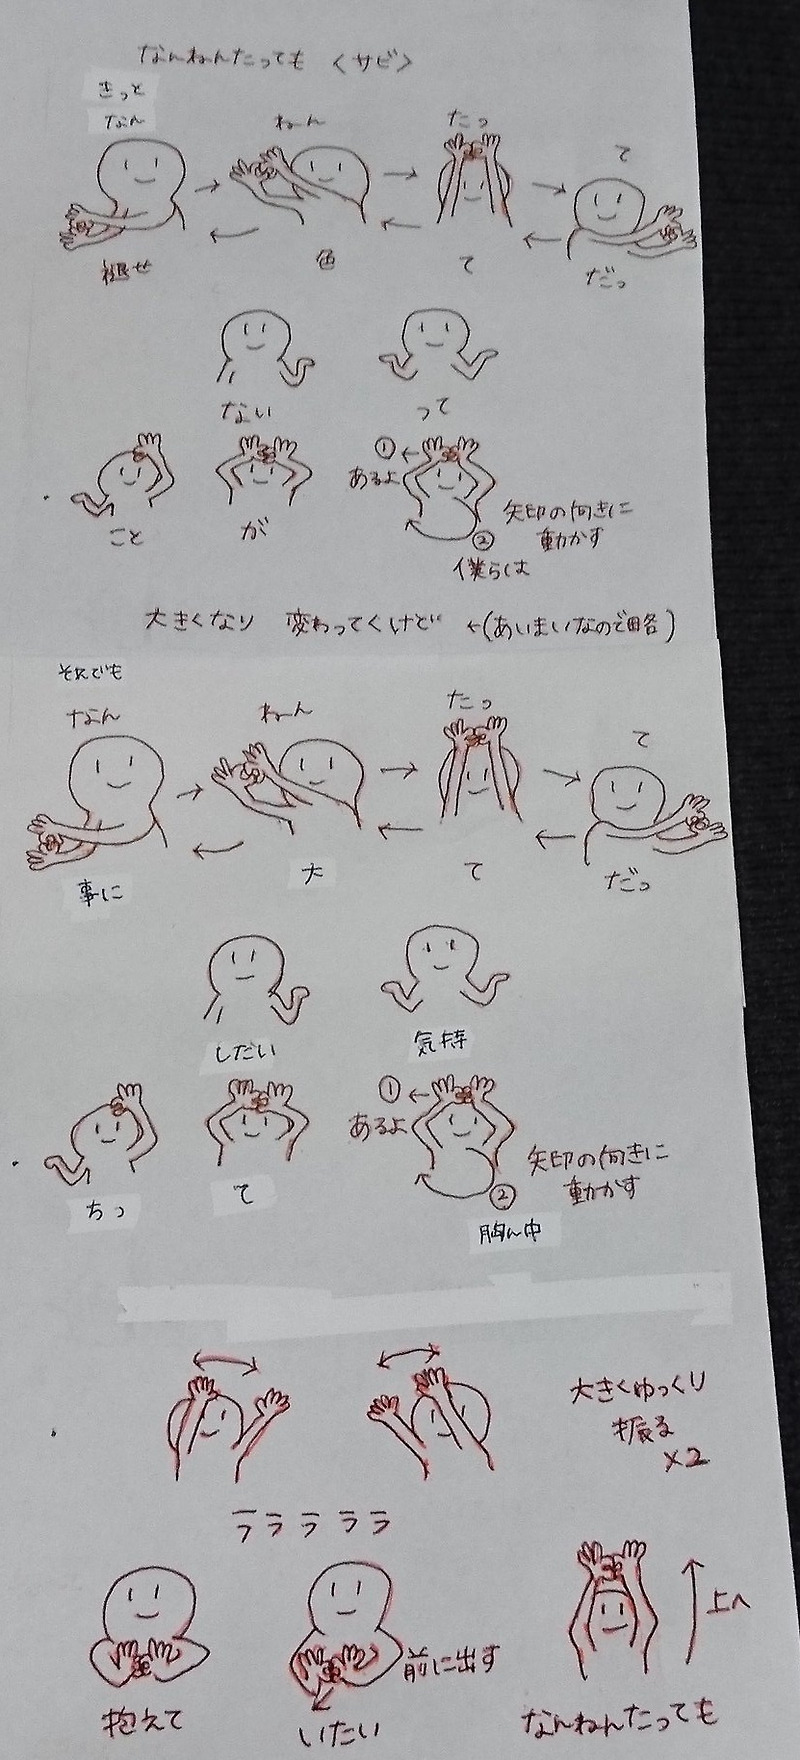 なんねんたっても 〈サビ〉
きっと
なん ねん たっ て
褪せ 色 て だっ
ない って
こと が ①あるよ 矢印の向きに
動かす
②
僕らは
大きくなり 変わってくけど ←(あいまいなので略)
それでも
なん ねん たっ て
事に 大 て だっ
したい 気持
ちっ て ①あるよ 矢印の向きに
動かす
②
胸ん中
大きくゆっくり
振る
×2
ラララララ
上へ
前に出す
抱えて いたい なんねんたっても